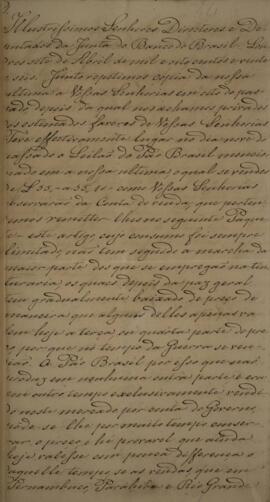 Illustrissimos Senhores Directores e De-
putados da Junta do Banco do Brasil. Lon-
dres oito de Abril de mil e oito centos e vinte
e seis. Junto repetimos copia da nossa
ultima a Vossas Senhorias em oito do pas-
sado, depois da qual nos achamos privados
os estimados favores de Vossas Senhorias
Teve effectivamente lugar no dia nove do
passado o Leilão do Páo Brasil mencio-
nado em a nossa ultima o qual se vendeo
de £ 33, a 35, se como Vossas Senhorias
observarão da Conta de venda, que perten-
demos remetter lhes no seguinte Paque-
te este artigo cujo consumo foi sempre
limitado, não tem seguido a marcha da
maior parte dos que se empregão na tin-
turaria, os quaes depois da paz geral
em gradualmente baixado de preço de
maneira que alguns delles apenas va-
lem hoje a terça ou quarta parte do pre-
ço, por que no tempo da Guerra se ven-
dião. O Páo Brasil por isso que não
produz em nenhuma outra parte e era
em outro tempo exclusivamente vendi-
do neste mercado por conta do Governo,
pode se lhe por muito tempo conser-
var o preço, e he provavel que ainda
hoje valesse com pouca differença o
aquelle tempo se as vendas que em
Pernambuco Parahiba e Rio Grande